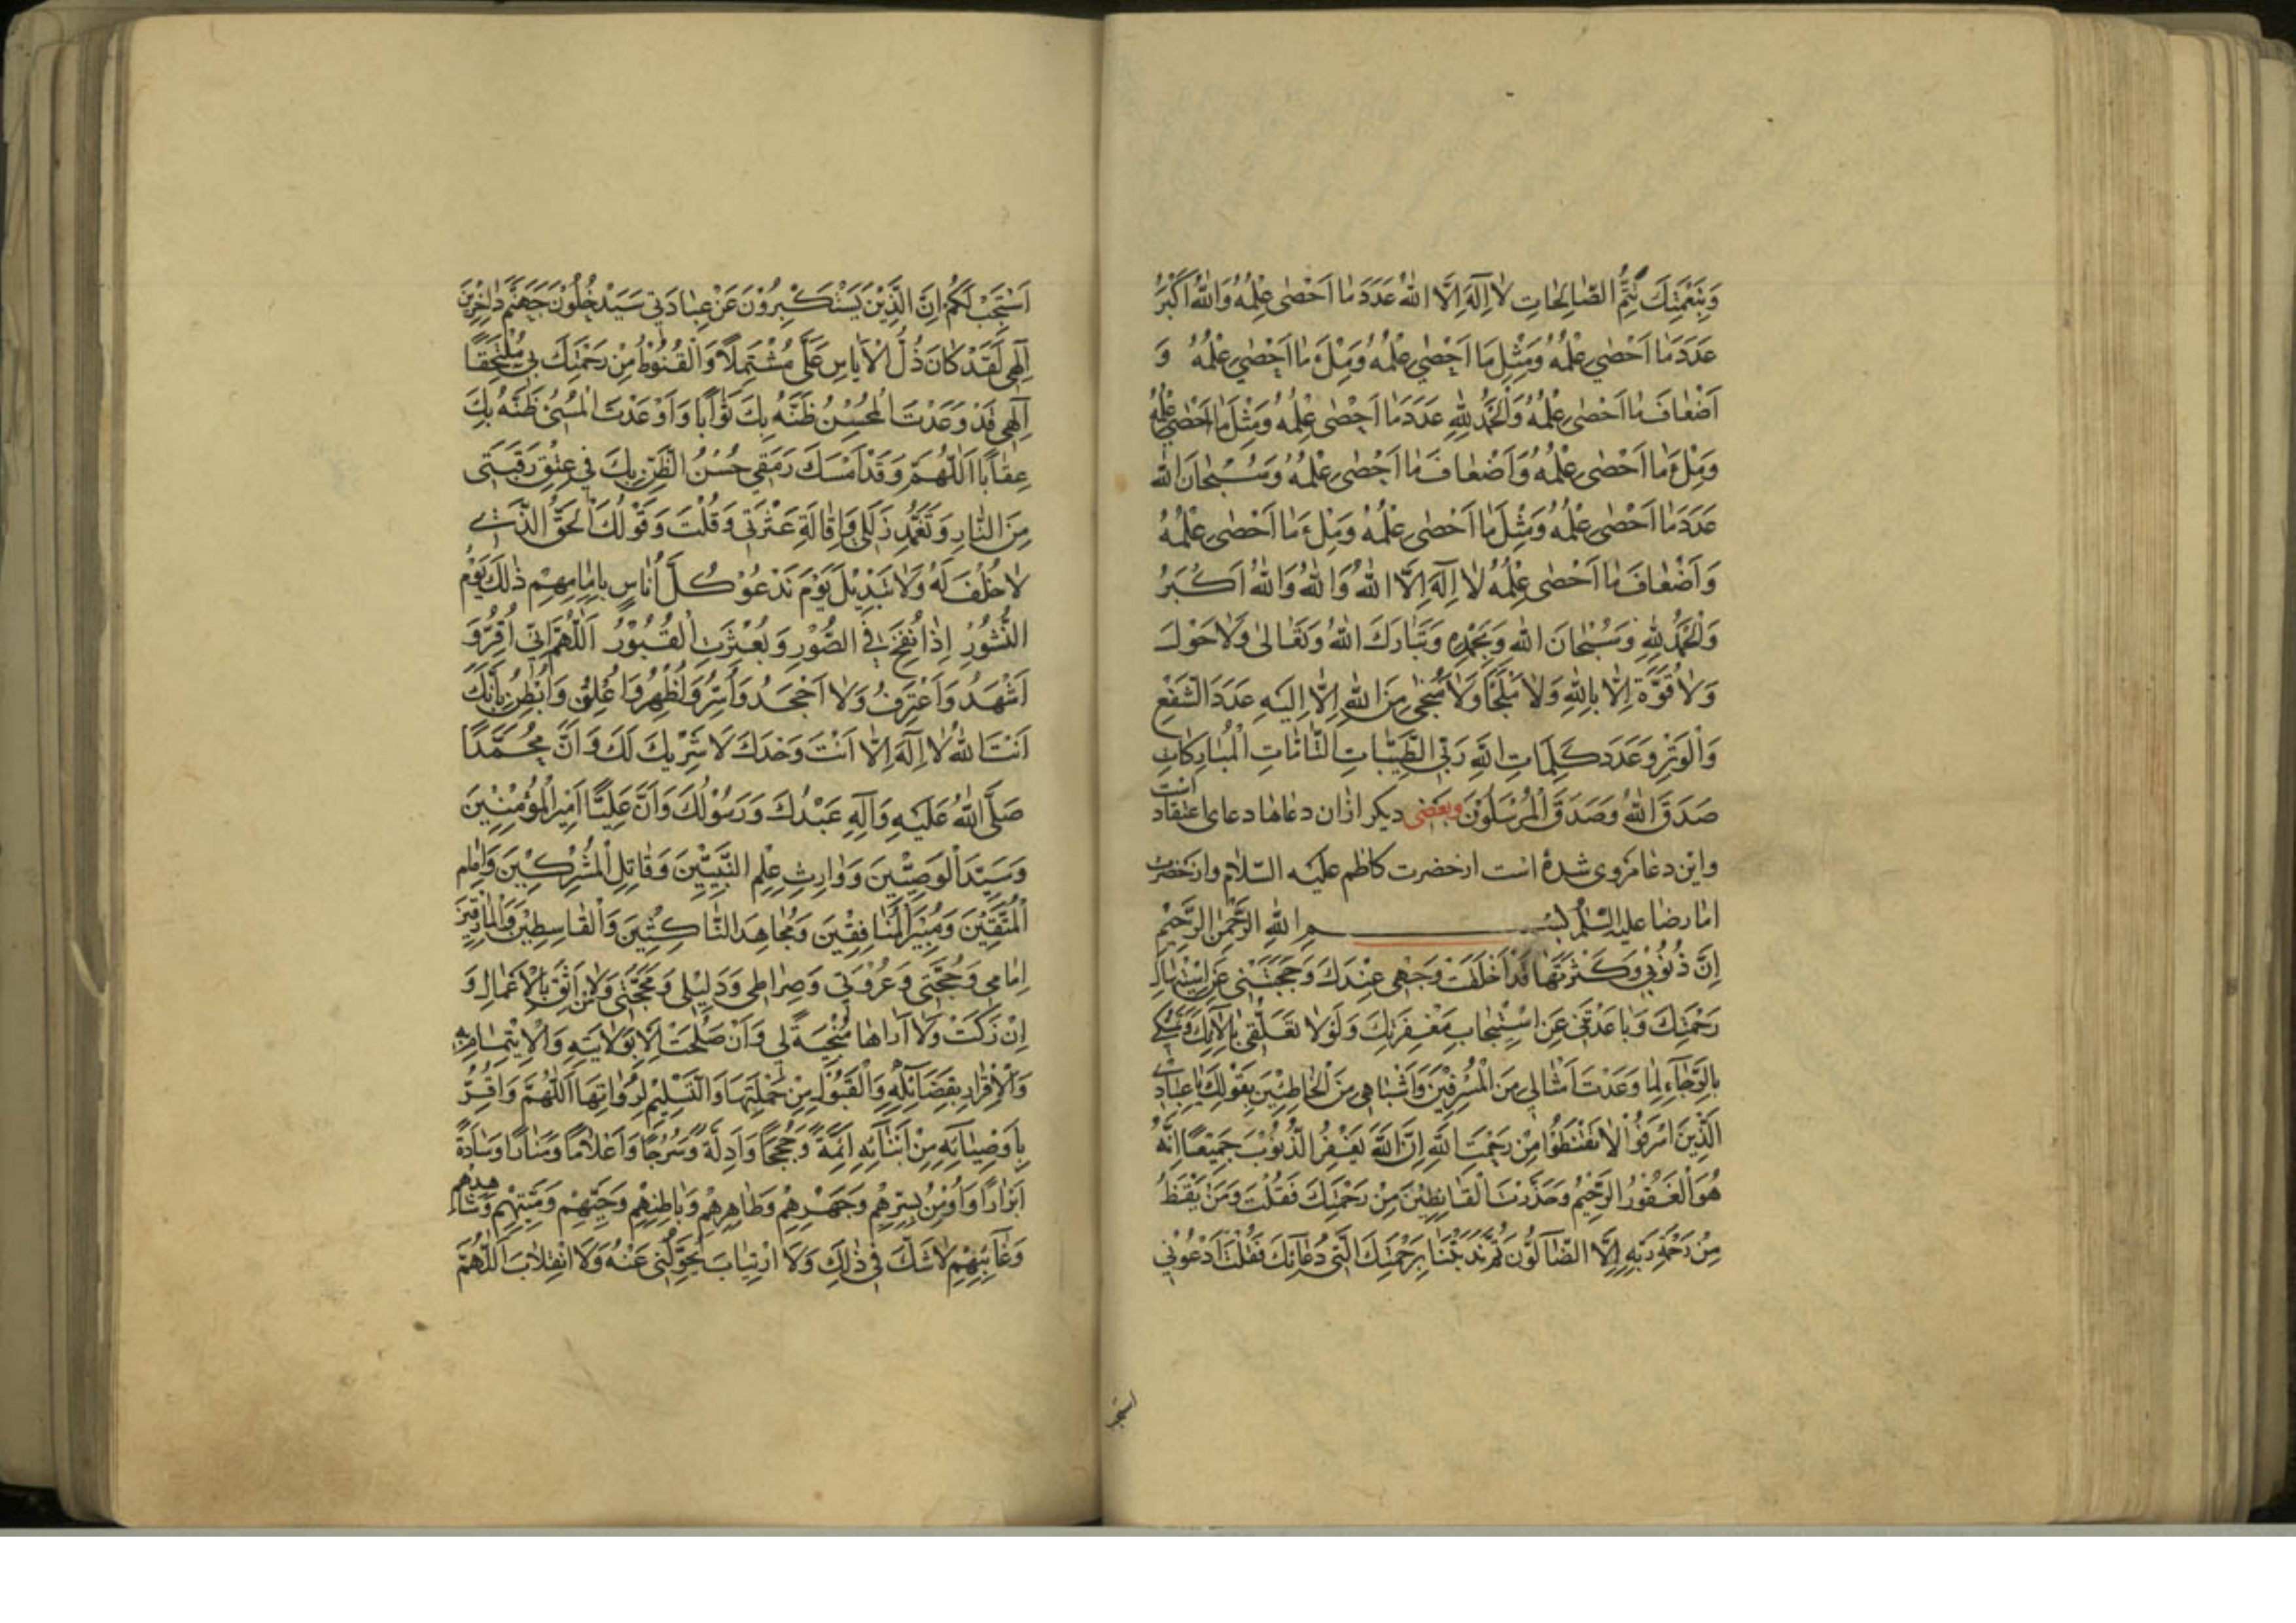 وَبِنِعْمَتِكَ تَتِمُّ الصَّالِحَاتِ لَا اِلَهَ اِلَّا اللهُ عَدَدَ مَا اَحْصٰى عِلْمُهُ وَاللهُ اَكْبَرُ
عَدَدَ مَا اَحْصٰى عِلْمُهُ وَمِثْلَ مَا اَحْصٰى عِلْمُهُ وَمِلْءَ مَا اَحْصٰى عِلْمُهُ وَ
اَضْعَافَ مَا اَحْصٰى عِلْمُهُ وَالْحَمْدُ لِلّٰهِ عَدَدَ مَا اَحْصٰى عِلْمُهُ وَمِثْلَ مَا اَحْصٰى عِلْمُهُ
وَمِلْءَ مَا اَحْصٰى عِلْمُهُ وَاَضْعَافَ مَا اَحْصٰى عِلْمُهُ وَسُبْحَانَ الله
عَدَدَ مَا اَحْصٰى عِلْمُهُ وَمِثْلَ مَا اَحْصٰى عِلْمُهُ وَمِلْءَ مَا اَحْصٰى عِلْمُهُ
وَاَضْعَافَ مَا اَحْصٰى عِلْمُهُ لَا اِلَهَ اِلَّا اللهُ وَاللهُ وَاللهُ اَكْبَرُ
وَالْحَمْدُ لِلّٰهِ وَسُبْحَانَ الله وَبِحَمْدِهِ وَتَبَارَكَ اللهُ وَتَعَالٰى وَلَا حَوْلَ
وَلَا قُوَّةَ اِلَّا بِاللهِ وَلَا مَلْجَأَ وَلَا مَنْجٰى مِنَ اللهِ اِلَّا اِلَيْهِ عَدَدَ الشَّفْعِ
وَالْوَتْرِ وَعَدَدَ كَلِمَاتِ اللهِ رَبِّيَ الطَّيِّبَاتِ التَّامَّاتِ الْمُبَارَكَاتِ
صَدَقَ اللهُ وَصَدَقَ الْمُرْسَلُوْنَ وبعضى ديكر ازان دعاها دعاى اعتقاد است
واين دعا مروى شده است از حضرت كاظم عليه السّلام واز حضرت
امام رضا عليه السّلم بِسْمِ اللهِ الرَّحْمٰنِ الرَّحِيْمِ
اِنَّ ذُنُوْبِيْ وَكَثْرَتَهَا قَدْ اَخْلَقَتْ وَجْهِى عِنْدَكَ وَحَجَبَتْنِيْ عَنِ اسْتِيْهَالِ
رَحْمَتِكَ وَبَاعَدَتْنِيْ عَنِ اسْتِيْجَابِ مَغْفِرَتِكَ وَلَوْلَا تَعَلُّقِيْ بِآلَائِكَ وَتَمَسُّكِى
بِالرَّجَاءِ لِمَا وَعَدْتَ اَمْثَالِى مِنَ الْمُسْرِفِيْنَ وَاَشْبَاهِى مِنَ الْخَاطِئِيْنَ بِقَوْلِكَ يَا عِبَادِىَ
الَّذِيْنَ اَسْرَفُوْا لَا تَقْنَطُوْا مِنْ رَحْمَتِ اللهِ اِنَّ اللهَ يَغْفِرُ الذُّنُوْبَ جَمِيْعًا اِنَّهُ
هُوَ الْغَفُوْرُ الرَّحِيْمُ وَحَذَّرْتَ الْقَانِطِيْنَ مِنْ رَحْمَتِكَ فَقُلْتَ وَمَنْ يَقْنَطُ
مِنْ رَحْمَةِ رَبِّهِ اِلَّا الضَّآلُّوْنَ ثُمَّ نَدَبْتَنَا بِرَحْمَتِكَ اِلٰى دُعَائِكَ فَقُلْتَ ادْعُوْنِيْ
اَسْتَجِبْ لَكُمْ اِنَّ الَّذِيْنَ يَسْتَكْبِرُوْنَ عَنْ عِبَادَتِيْ سَيَدْخُلُوْنَ جَهَنَّمَ دَاخِرِيْنَ
اِلٰهِى لَقَدْ كَانَ ذُلُّ الْاِيَاسِ عَلَيَّ مُشْتَمِلًا وَالْقُنُوْطُ مِنْ رَحْمَتِكَ بِيْ مُلْتَحِقًا
اِلٰهِى قَدْ وَعَدْتَ الْمُحْسِنَ ظَنَّهُ بِكَ ثَوَابًا وَاَوْعَدْتَ الْمُسِيْءَ ظَنَّهُ بِكَ
عِقَابًا اَللّٰهُمَّ وَقَدْ اَمْسَكَ رَمَقِي حُسْنُ الظَّنِّ بِكَ فِي عِتْقِ رَقَبَتِى
مِنَ النَّارِ وَتَغَمُّدِ زَلَلِي وَاِقَالَةِ عَثْرَتِي وَقُلْتَ وَقَوْلُكَ الْحَقُّ الَّذِى
لَا خُلْفَ لَهُ وَلَا تَبْدِيْلَ يَوْمَ نَدْعُوْ كُلَّ اُنَاسٍ بِاِمَامِهِمْ ذٰلِكَ يَوْمُ
النُّشُوْرِ اِذَا نُفِخَ فِي الصُّوْرِ وَبُعْثِرَتِ الْقُبُوْرُ اَللّٰهُمَّ اِنِّي اُقِرُّ وَ
اَشْهَدُ وَاَعْتَرِفُ وَلَا اَجْحَدُ وَاُسِرُّ وَاُظْهِرُ وَاُعْلِنُ وَاُبْطِنُ بِاَنَّكَ
اَنْتَ اللهُ لَا اِلَهَ اِلَّا اَنْتَ وَحْدَكَ لَا شَرِيْكَ لَكَ وَاَنَّ مُحَمَّدًا
صَلَّى اللهُ عَلَيْهِ وَآلِهِ عَبْدُكَ وَرَسُوْلُكَ وَاَنَّ عَلِيًّا اَمِيْرُ الْمُؤْمِنِيْنَ
وَسَيِّدُ الْوَصِيِّيْنَ وَوَارِثُ عِلْمِ النَّبِيِّيْنَ وَقَاتِلُ الْمُشْرِكِيْنَ وَاِمَامُ
الْمُتَّقِيْنَ وَمُبِيْرُ الْمُنَافِقِيْنَ وَمُجَاهِدُ النَّاكِثِيْنَ وَالْقَاسِطِيْنَ وَالْمَارِقِيْنَ
اِمَامِي وَحُجَّتِى وَعُرْوَتِي وَصِرَاطِى وَدَلِيْلِى وَمَحَجَّتِى وَمَنْ لَا اَثِقُ بِالْاَعْمَالِ وَ
اِنْ زَكَتْ وَلَا اَرَاهَا مُنْجِيَةً لِي وَاِنْ صَلُحَتْ اِلَّا بِوَلَايَتِهِ وَالْاِيْتِمَامِ بِهِ
وَالْاِقْرَارِ بِفَضَائِلِهِ وَالْقَبُوْلِ مِنْ حَمَلَتِهَا وَالتَّسْلِيْمِ لِرُوَاتِهَا اَللّٰهُمَّ وَاُقِرُّ
بِاَوْصِيَائِهِ مِنْ اَبْنَائِهِ اَئِمَّةً وَحُجَجًا وَاَدِلَّةً وَسُرُجًا وَاَعْلَامًا وَمَنَارًا وَسَادَةً
اَبْرَارًا وَاُوْمِنُ بِسِرِّهِمْ وَجَهْرِهِمْ وَظَاهِرِهِمْ وَبَاطِنِهِمْ وَحَيِّهِمْ وَمَيِّتِهِمْ وَشَاهِدِهِمْ
وَغَائِبِهِمْ لَا شَكَّ فِي ذٰلِكَ وَلَا ارْتِيَابَ يُحَوِّلُنِي عَنْهُ وَلَا انْقِلَابَ اَللّٰهُمَّ